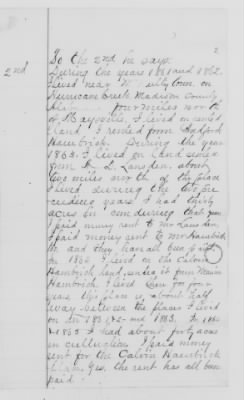 2
2nd
To the 2nd he says:
During the years 1861 and 1862
I lived near town on
Hurricane Creek Madison County
Ala four miles north
of Maysville. I lived on rented
land. I rented from
Hambrick. During the year
1863 I lived on land rented
from Lansden about
two miles north of the place
I lived during the two pre-
ceeding years. I had thirty
acres in corn during that year
I paid money rent to Mr Lansden
I paid money rent to Mr Hambrick
and they have all been paid
In 1864 I lived on the Calvin
Hambrick land, rented it from
Hambrick. I lived for four
years. This place is about half
way between the places I lived
on in 1861 & 2 and 1863. In 1864
& 1865 I had about forty acres
in cultivation. I paid money
rent for the Calvin Hambrick
place. Yes, the rent has all been
paid.